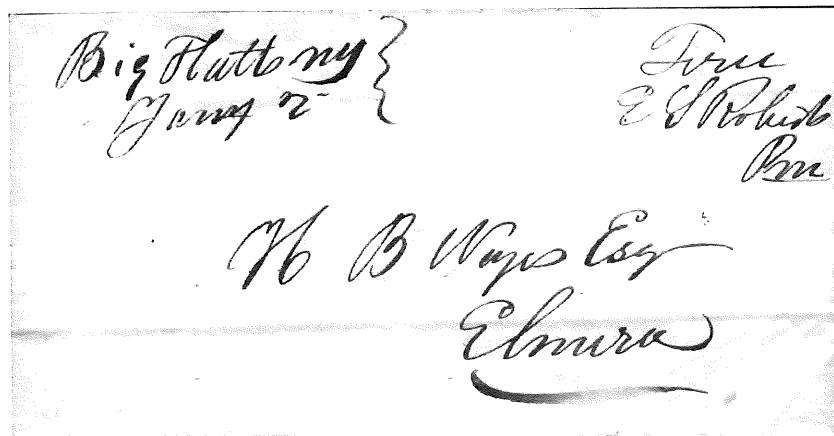 Big Flatts NY
Jany 2
Free
E S Roberts
Pm
H B Noyes Esq
Elmira